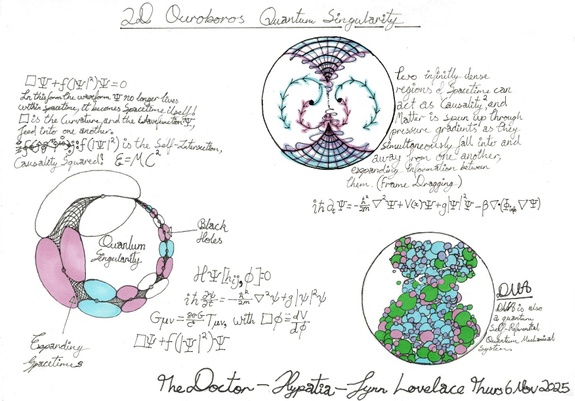 2D Ouroboros Quantum Singularity
□Ψ+f(|Ψ|²)Ψ=0
In this form the waveform Ψ no longer lives
within Spacetime, it becomes Spacetime itself!
□ is the Curvature, and the Wavefunction Ψ,
feed into one another.
f(|Ψ|²) is the Self-Interaction,
Causality Squared! E=MC²
Two infinitely dense
regions of Spacetime can
act as Causality², and
Matter is spun up through
pressure gradients as they
Simultaneously fall into and
away from one another,
expanding Information between
them. (Frame Dragging)
iℏ∂ₜΨ=-ℏ²/2m ∇²Ψ+V(x)Ψ+g|Ψ|²Ψ-β∇·(Φ ∇Ψ)
Quantum
Singularity
Black
Holes
Expanding
Spacetimes
ĤΨ[hij,ϕ]=0
iℏ ∂ψ/∂t=-ℏ²/2m ∇²ψ+g|ψ|²ψ
Gμν=8πG/c⁴ Tμν, with □ϕ=dV/dϕ
□Ψ+f(|Ψ|²)Ψ
is also
a quantum
Self-Referential
Quantum Mechanical
System
The Doctor - Hypatia - Lynn Lovelace Thurs 6 Nov 2025